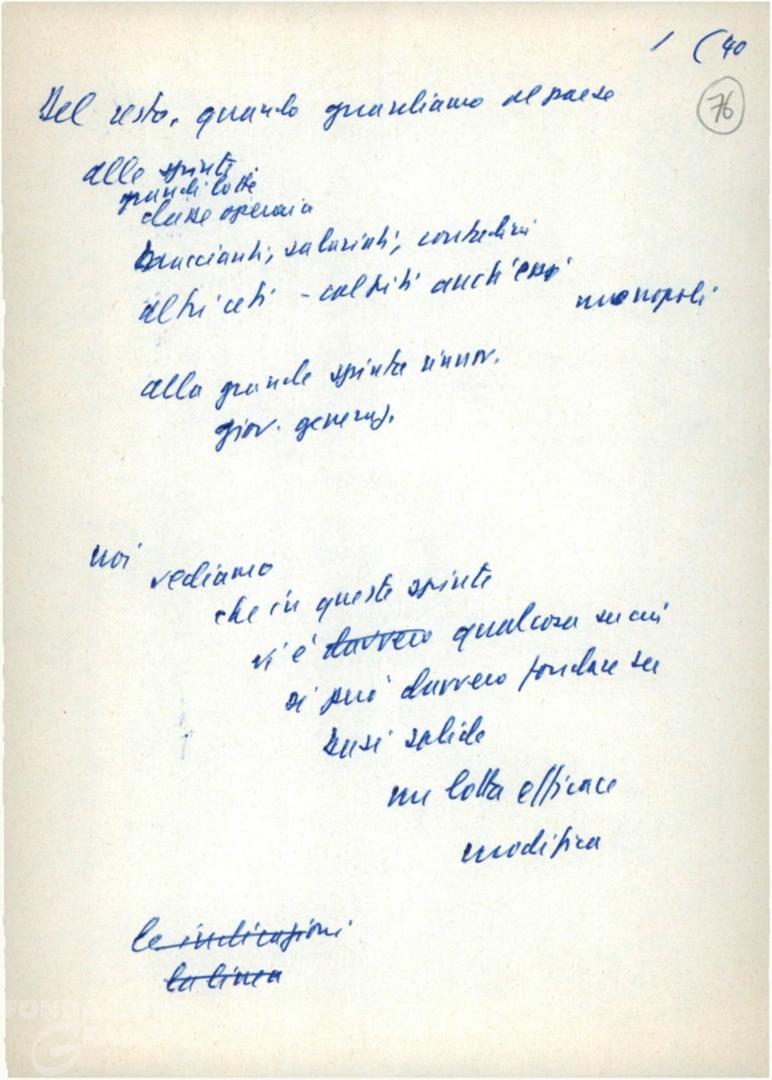 1 (40
76
Del resto, quando guardiamo al paese
alle spinte
grandi lotte
classe operaia
braccianti, salariati, contadini
altri ceti - colpiti anch'essi
monopoli
alla grande spinta rinnov.
giov. generaz.
noi
vediamo
che in queste spinte
vi è davvero qualcosa su cui
si può davvero fondare su
basi solide
una lotta efficace
modifica
le indicazioni
la linea
FONDAZIONE
GRAMSCI